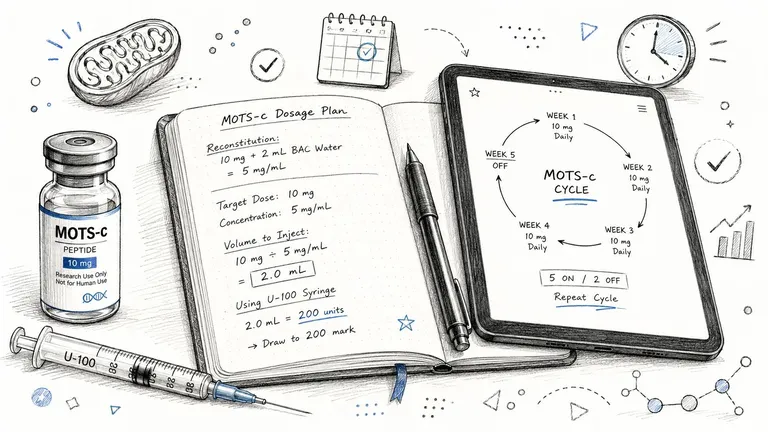 MOTS-c
PEPTIDE
10 mg
Research Use Only
Not for Human Use
U-100
MOTS-c Dosage Plan
Reconstitution:
10 mg + 2 mL BAC Water
= 5 mg/mL
Target Dose: 10 mg
Concentration: 5 mg/mL
Volume to Inject:
10 mg ÷ 5 mg/mL
= 2.0 mL
Using U-100 Syringe
2.0 mL = 200 units
→ Draw to 200 mark
WEEK 1
10 mg
Daily
WEEK 2
10 mg
Daily
WEEK 3
10 mg
Daily
WEEK 4
10 mg
Daily
WEEK 5
OFF
MOTS-c
CYCLE
5 ON / 2 OFF
Repeat Cycle